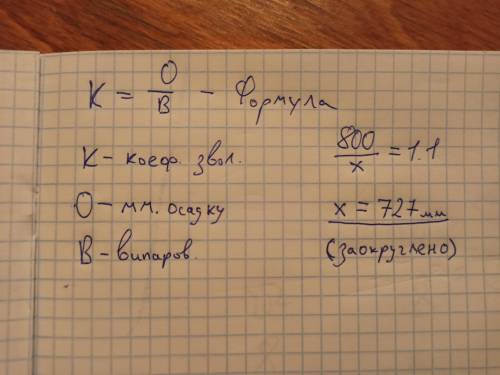 К = О/В - Формула
К - коеф. звол.
О - мм. осадку
В - випаров.
800/x = 1.1
x = 727 мм
(заокруглено)